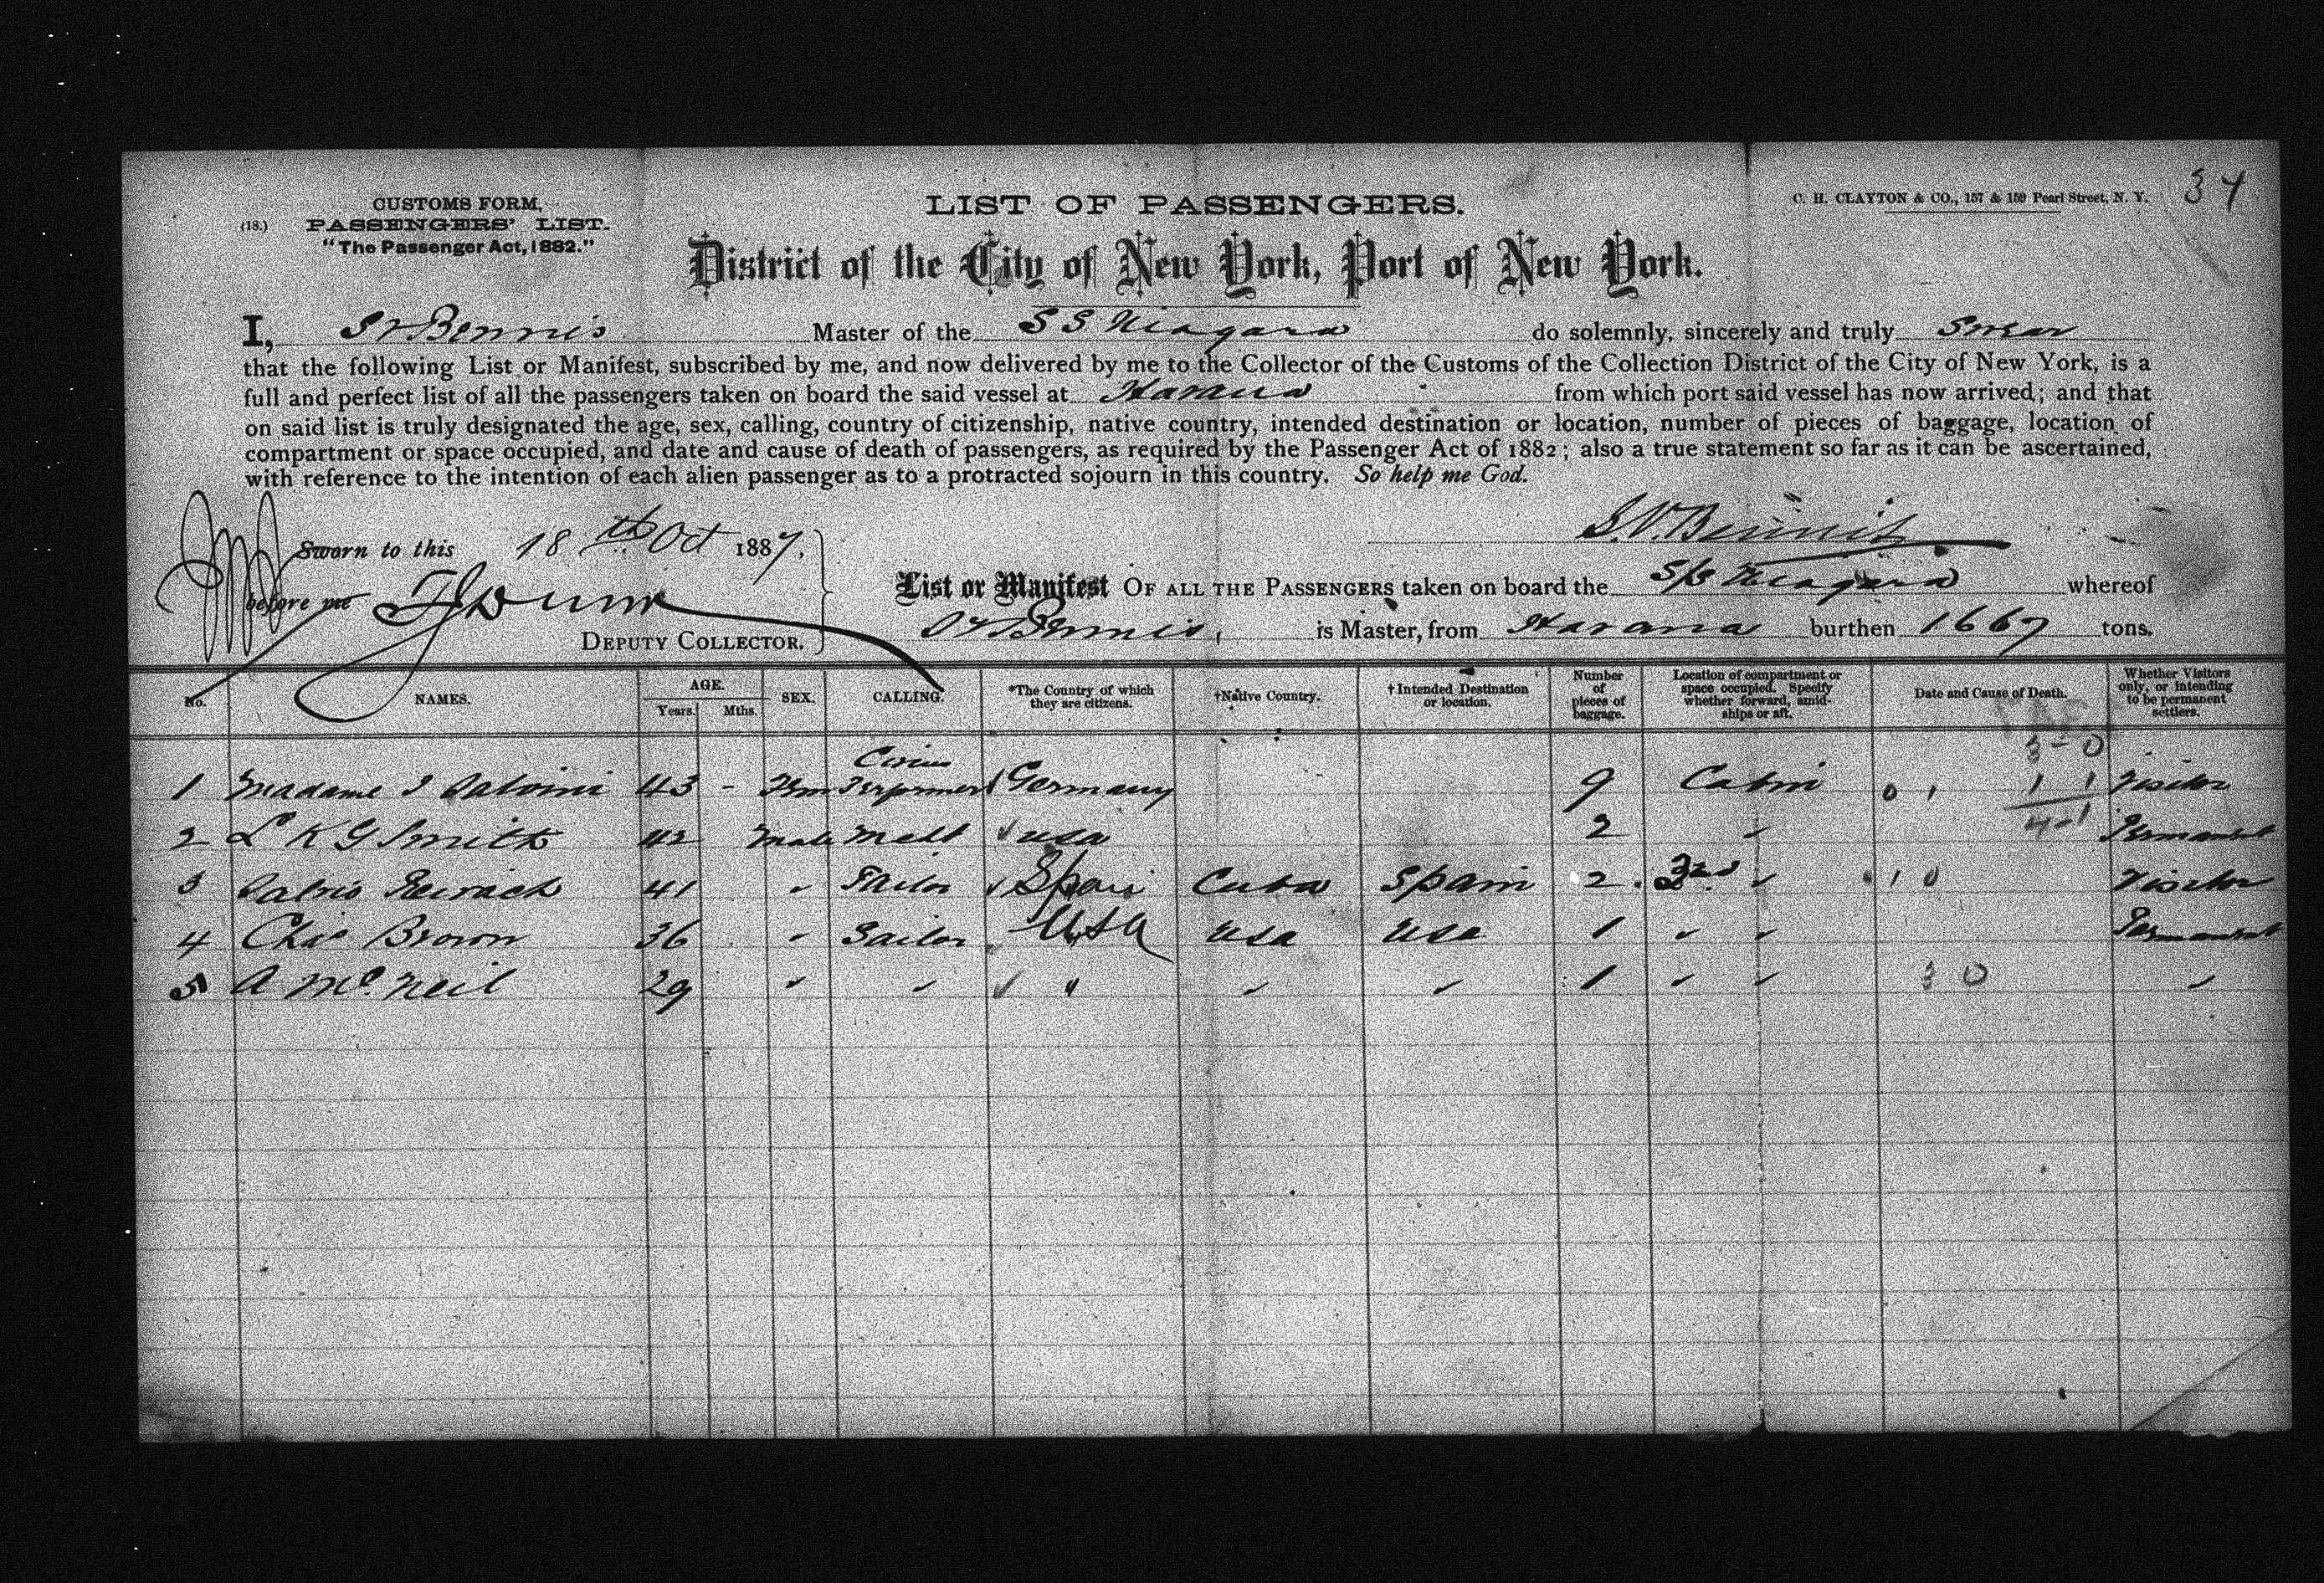 34
CUSTOMS FORM, LIST OF PASSENGERS. C. H. CLAYTON & CO., 157 & 159 Pearl Street, N. Y.
(18.) PASSENGERS' LIST.
"The Passenger Act, 1882."
District of the City of New York, Port of New York.
I, Bennis Master of the S S Niagara do solemnly, sincerely and truly Swear
that the following List or Manifest, subscribed by me, and now delivered by me to the Collector of the Customs of the Collection District of the City of New York, is a
full and perfect list of all the passengers taken on board the said vessel at Havana from which port said vessel has now arrived; and that
on said list is truly designated the age, sex, calling, country of citizenship, native country, intended destination or location, number of pieces of baggage, location of
compartment or space occupied, and date and cause of death of passengers, as required by the Passenger Act of 1882; also a true statement so far as it can be ascertained,
with reference to the intention of each alien passenger as to a protracted sojourn in this country. So help me God.
Sworn to this 18th Oct 1887,
before me
DEPUTY COLLECTOR.
List or Manifest OF ALL THE PASSENGERS taken on board the Niagara whereof
Bennis, is Master, from Havana burthen 1667 tons.
No. NAMES. AGE. Years. Mths. SEX. CALLING. *The Country of which they are citizens. †Native Country. †Intended Destination or location. Number of pieces of baggage. Location of compartment or space occupied. Specify whether forward, amid-ships or aft. Date and Cause of Death. Whether Visitors only, or intending to be permanent settlers.
3-0
1 Madame 43 - Fem Circus Performer Germany 9 Cabin 0 1 1 1 Visitor
2 L K G Smith 42 Male USA 2 " 4-1 Permanent
3 41 " Sailor Spain Cuba Spain 2 2nd " 1 0 Visitor
4 Chas Brown 36 " Sailor USA USA USA 1 " " Permanent
5 A McNeil 29 " " " " " 1 " " 3 0 "